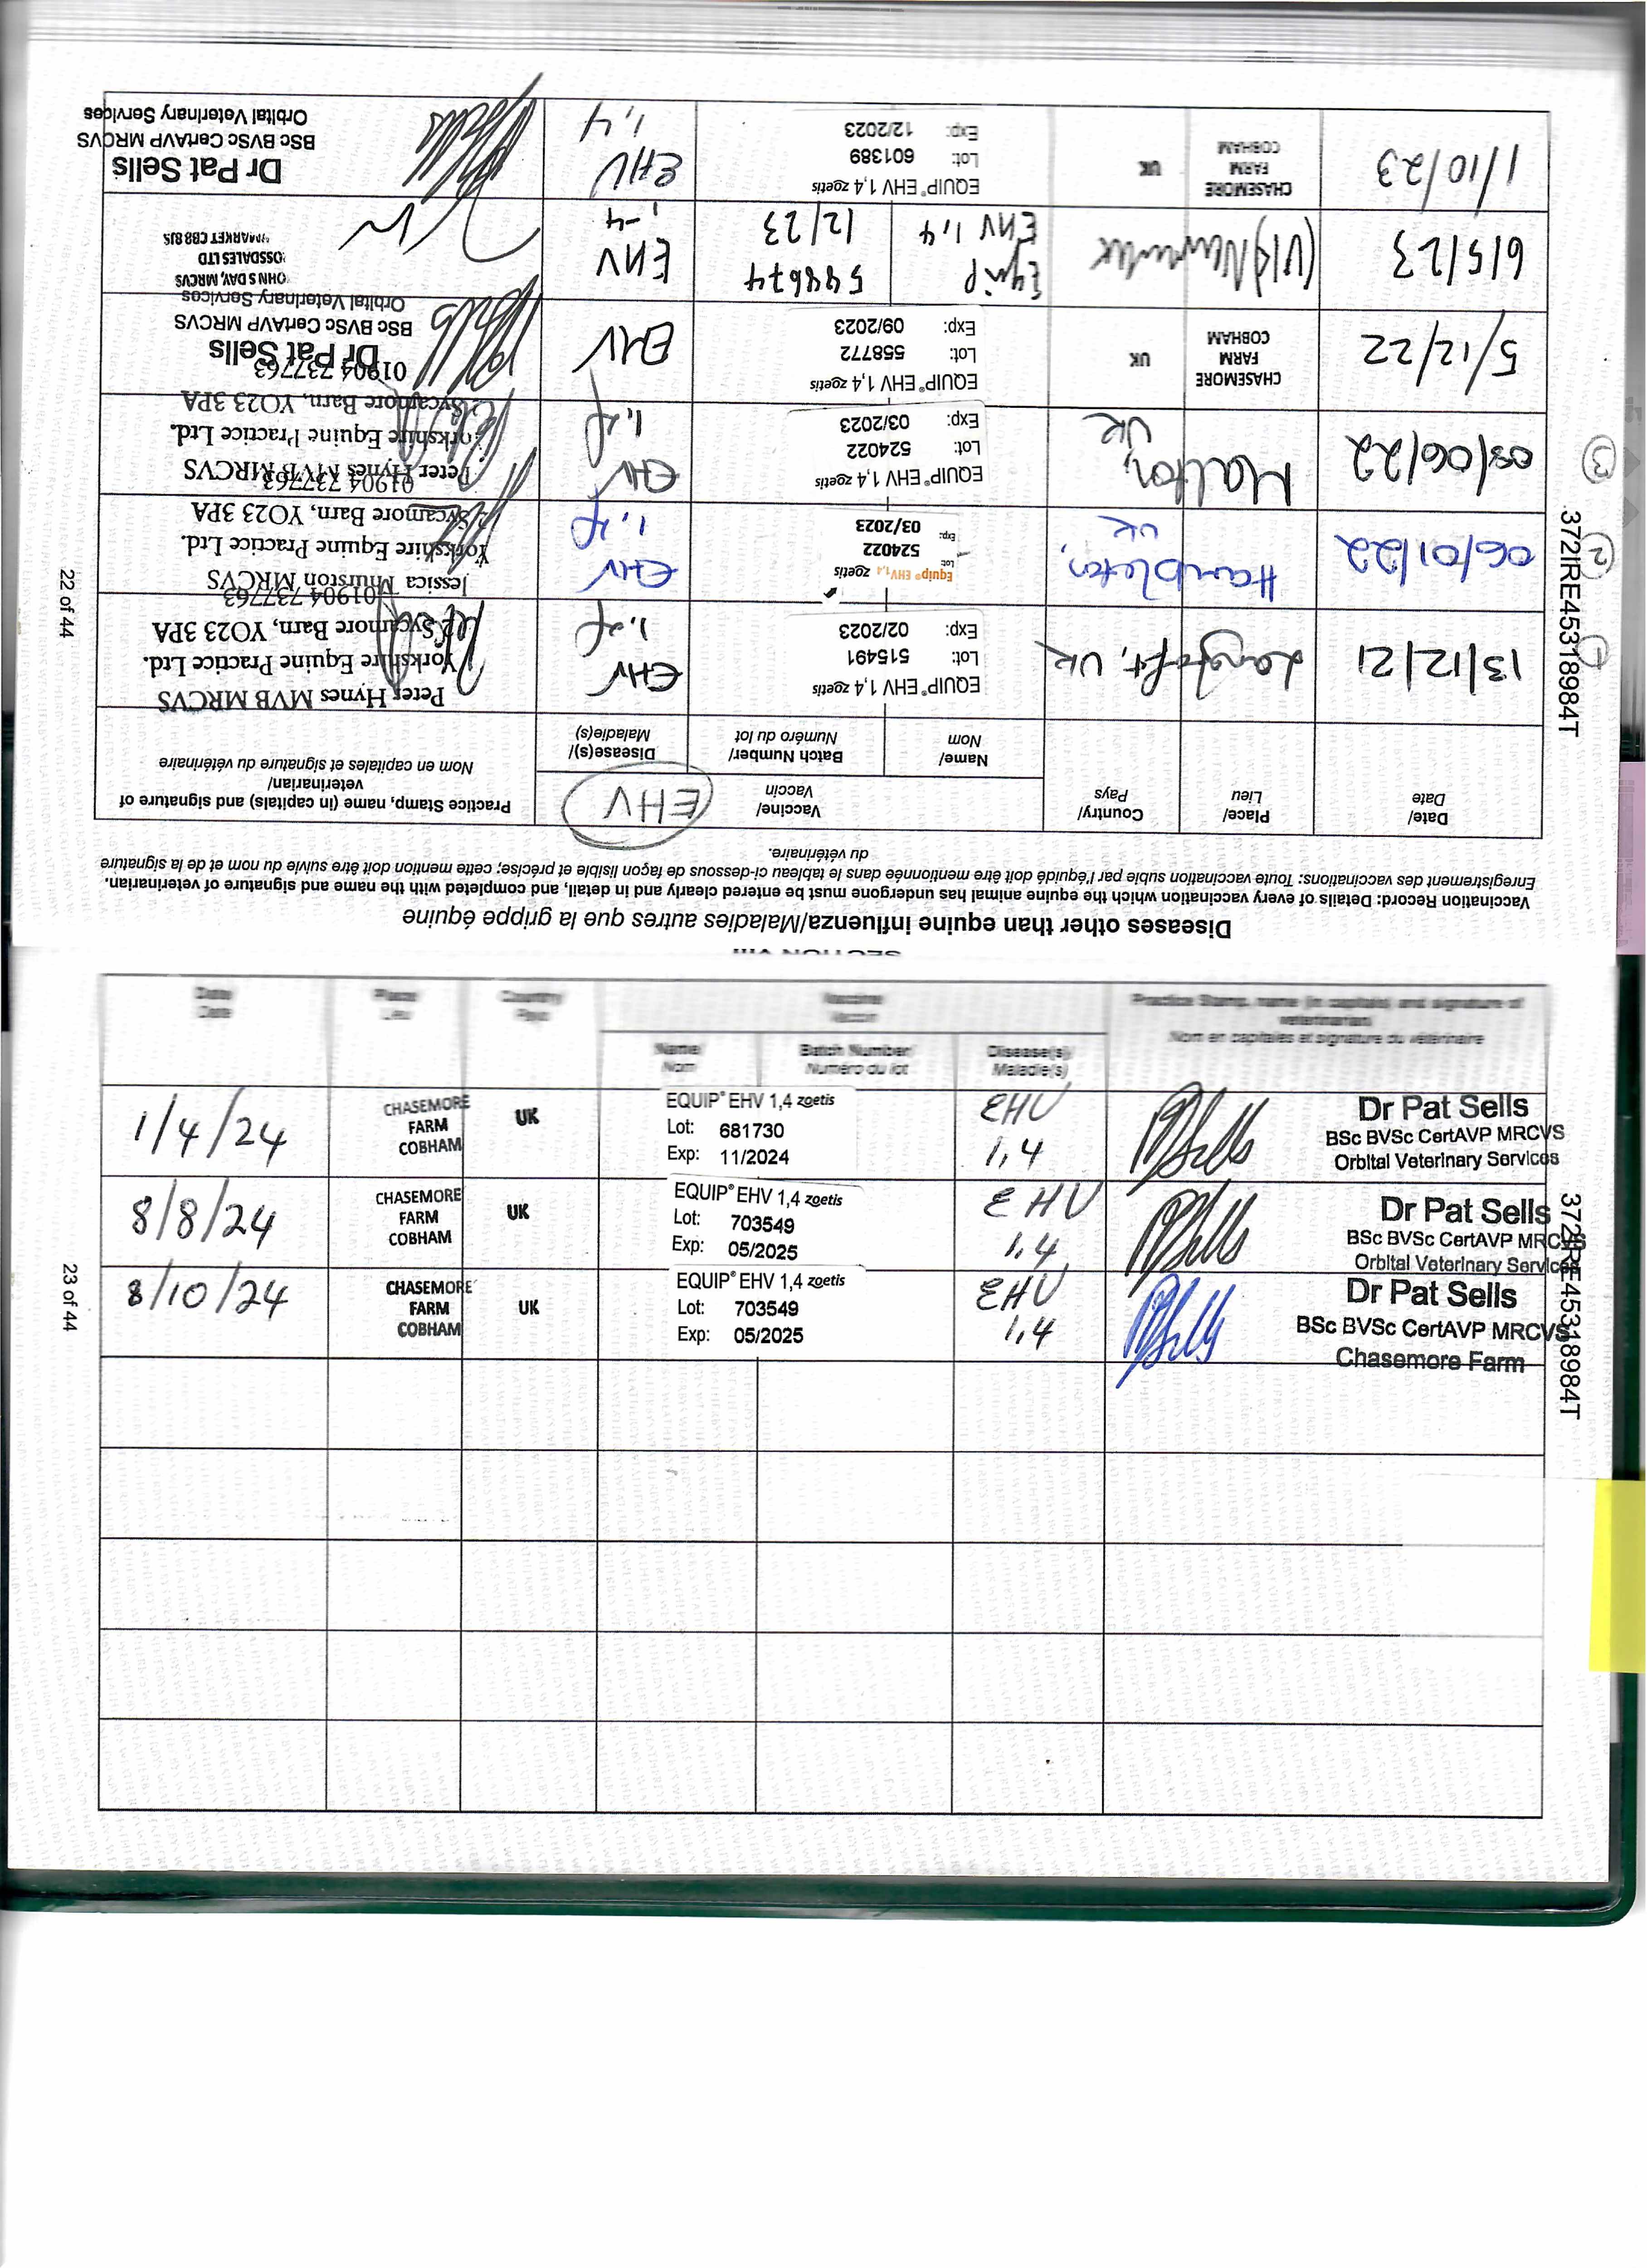 SECTION VIII
Diseases other than equine influenza/Maladies autres que la grippe équine
Vaccination Record: Details of every vaccination which the equine animal has undergone must be entered clearly and in detail, and completed with the name and signature of veterinarian.
Enregistrement des vaccinations: Toute vaccination subie par l'équidé doit être mentionnée dans le tableau ci-dessous de façon lisible et précise; cette mention doit être suivie du nom et de la signature
du vétérinaire.
Date/
Date
Place/
Lieu
Country/
Pays
Vaccine/
Vaccin
EHV
Practice Stamp, name (in capitals) and signature of
veterinarian/
Nom en capitales et signature du vétérinaire
Name/
Nom
Batch Number/
Numéro du lot
Disease(s)/
Maladie(s)
1
13/12/21
Langtoft, UK
EQUIP® EHV 1,4 zoetis
Lot: 515491
Exp: 02/2023
EHV
1,4
Peter Hynes MVB MRCVS
Yorkshire Equine Practice Ltd.
2 Sycamore Barn, YO23 3PA
01904 737763
2
06/01/22
Hambleton,
UK
Equip® EHV1,4 zoetis
Lot: 524022
Exp: 03/2023
EHV
1,4
Jessica Thurston MRCVS
Yorkshire Equine Practice Ltd.
2 Sycamore Barn, YO23 3PA
01904 737763
3
03/06/22
Malton,
UK
EQUIP® EHV 1,4 zoetis
Lot: 524022
Exp: 03/2023
EHV
1,4
Peter Hynes MVB MRCVS
Yorkshire Equine Practice Ltd.
2 Sycamore Barn, YO23 3PA
01904 737763
5/12/22
CHASEMORE
FARM
COBHAM
UK
EQUIP® EHV 1,4 zoetis
Lot: 558772
Exp: 09/2023
EHV
Dr Pat Sells
BSc BVSc CertAVP MRCVS
Orbital Veterinary Services
6/5/23
Equip
EHV 1,4
12/23
EHV
1-4
JOHN S DAY, MRCVS
ROSSDALES LTD
NEWMARKET CB8 8JS
1/10/23
CHASEMORE
FARM
COBHAM
UK
EQUIP® EHV 1,4 zoetis
Lot: 601389
Exp: 12/2023
EHV
1,4
Dr Pat Sells
BSc BVSc CertAVP MRCVS
Orbital Veterinary Services
372IRE45318984T
22 of 44
Date/
Date
Place/
Lieu
Country/
Pays
Vaccine
Vaccin
Practice Stamp, name (in capitals) and signature of
veterinarian/
Nom en capitales et signature du vétérinaire
Name/
Nom
Batch Number/
Numéro du lot
Disease(s)/
Maladie(s)
1/4/24
CHASEMORE
FARM
COBHAM
UK
EQUIP® EHV 1,4 zoetis
Lot: 681730
Exp: 11/2024
EHV
1,4
Dr Pat Sells
BSc BVSc CertAVP MRCVS
Orbital Veterinary Services
8/8/24
CHASEMORE
FARM
COBHAM
UK
EQUIP® EHV 1,4 zoetis
Lot: 703549
Exp: 05/2025
EHV
1,4
Dr Pat Sells
BSc BVSc CertAVP MRCVS
Orbital Veterinary Services
8/10/24
CHASEMORE
FARM
COBHAM
UK
EQUIP® EHV 1,4 zoetis
Lot: 703549
Exp: 05/2025
EHV
1,4
Dr Pat Sells
BSc BVSc CertAVP MRCVS
Chasemore Farm
372IRE45318984T
23 of 44